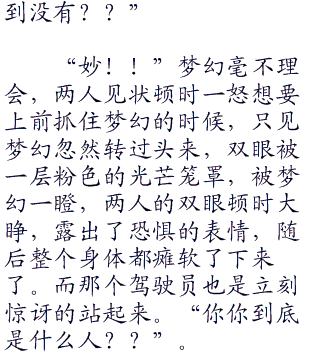 到没有？？”
“妙！！”梦幻毫不理
会，两人见状顿时一怒想要
上前抓住梦幻的时候，只见
梦幻忽然转过头来，双眼被
一层粉色的光芒笼罩，被梦
幻一瞪，两人的双眼顿时大
睁，露出了恐惧的表情，随
后整个身体都瘫软了下来
了。而那个驾驶员也是立刻
惊讶的站起来。“你你到底
是什么人？？”。